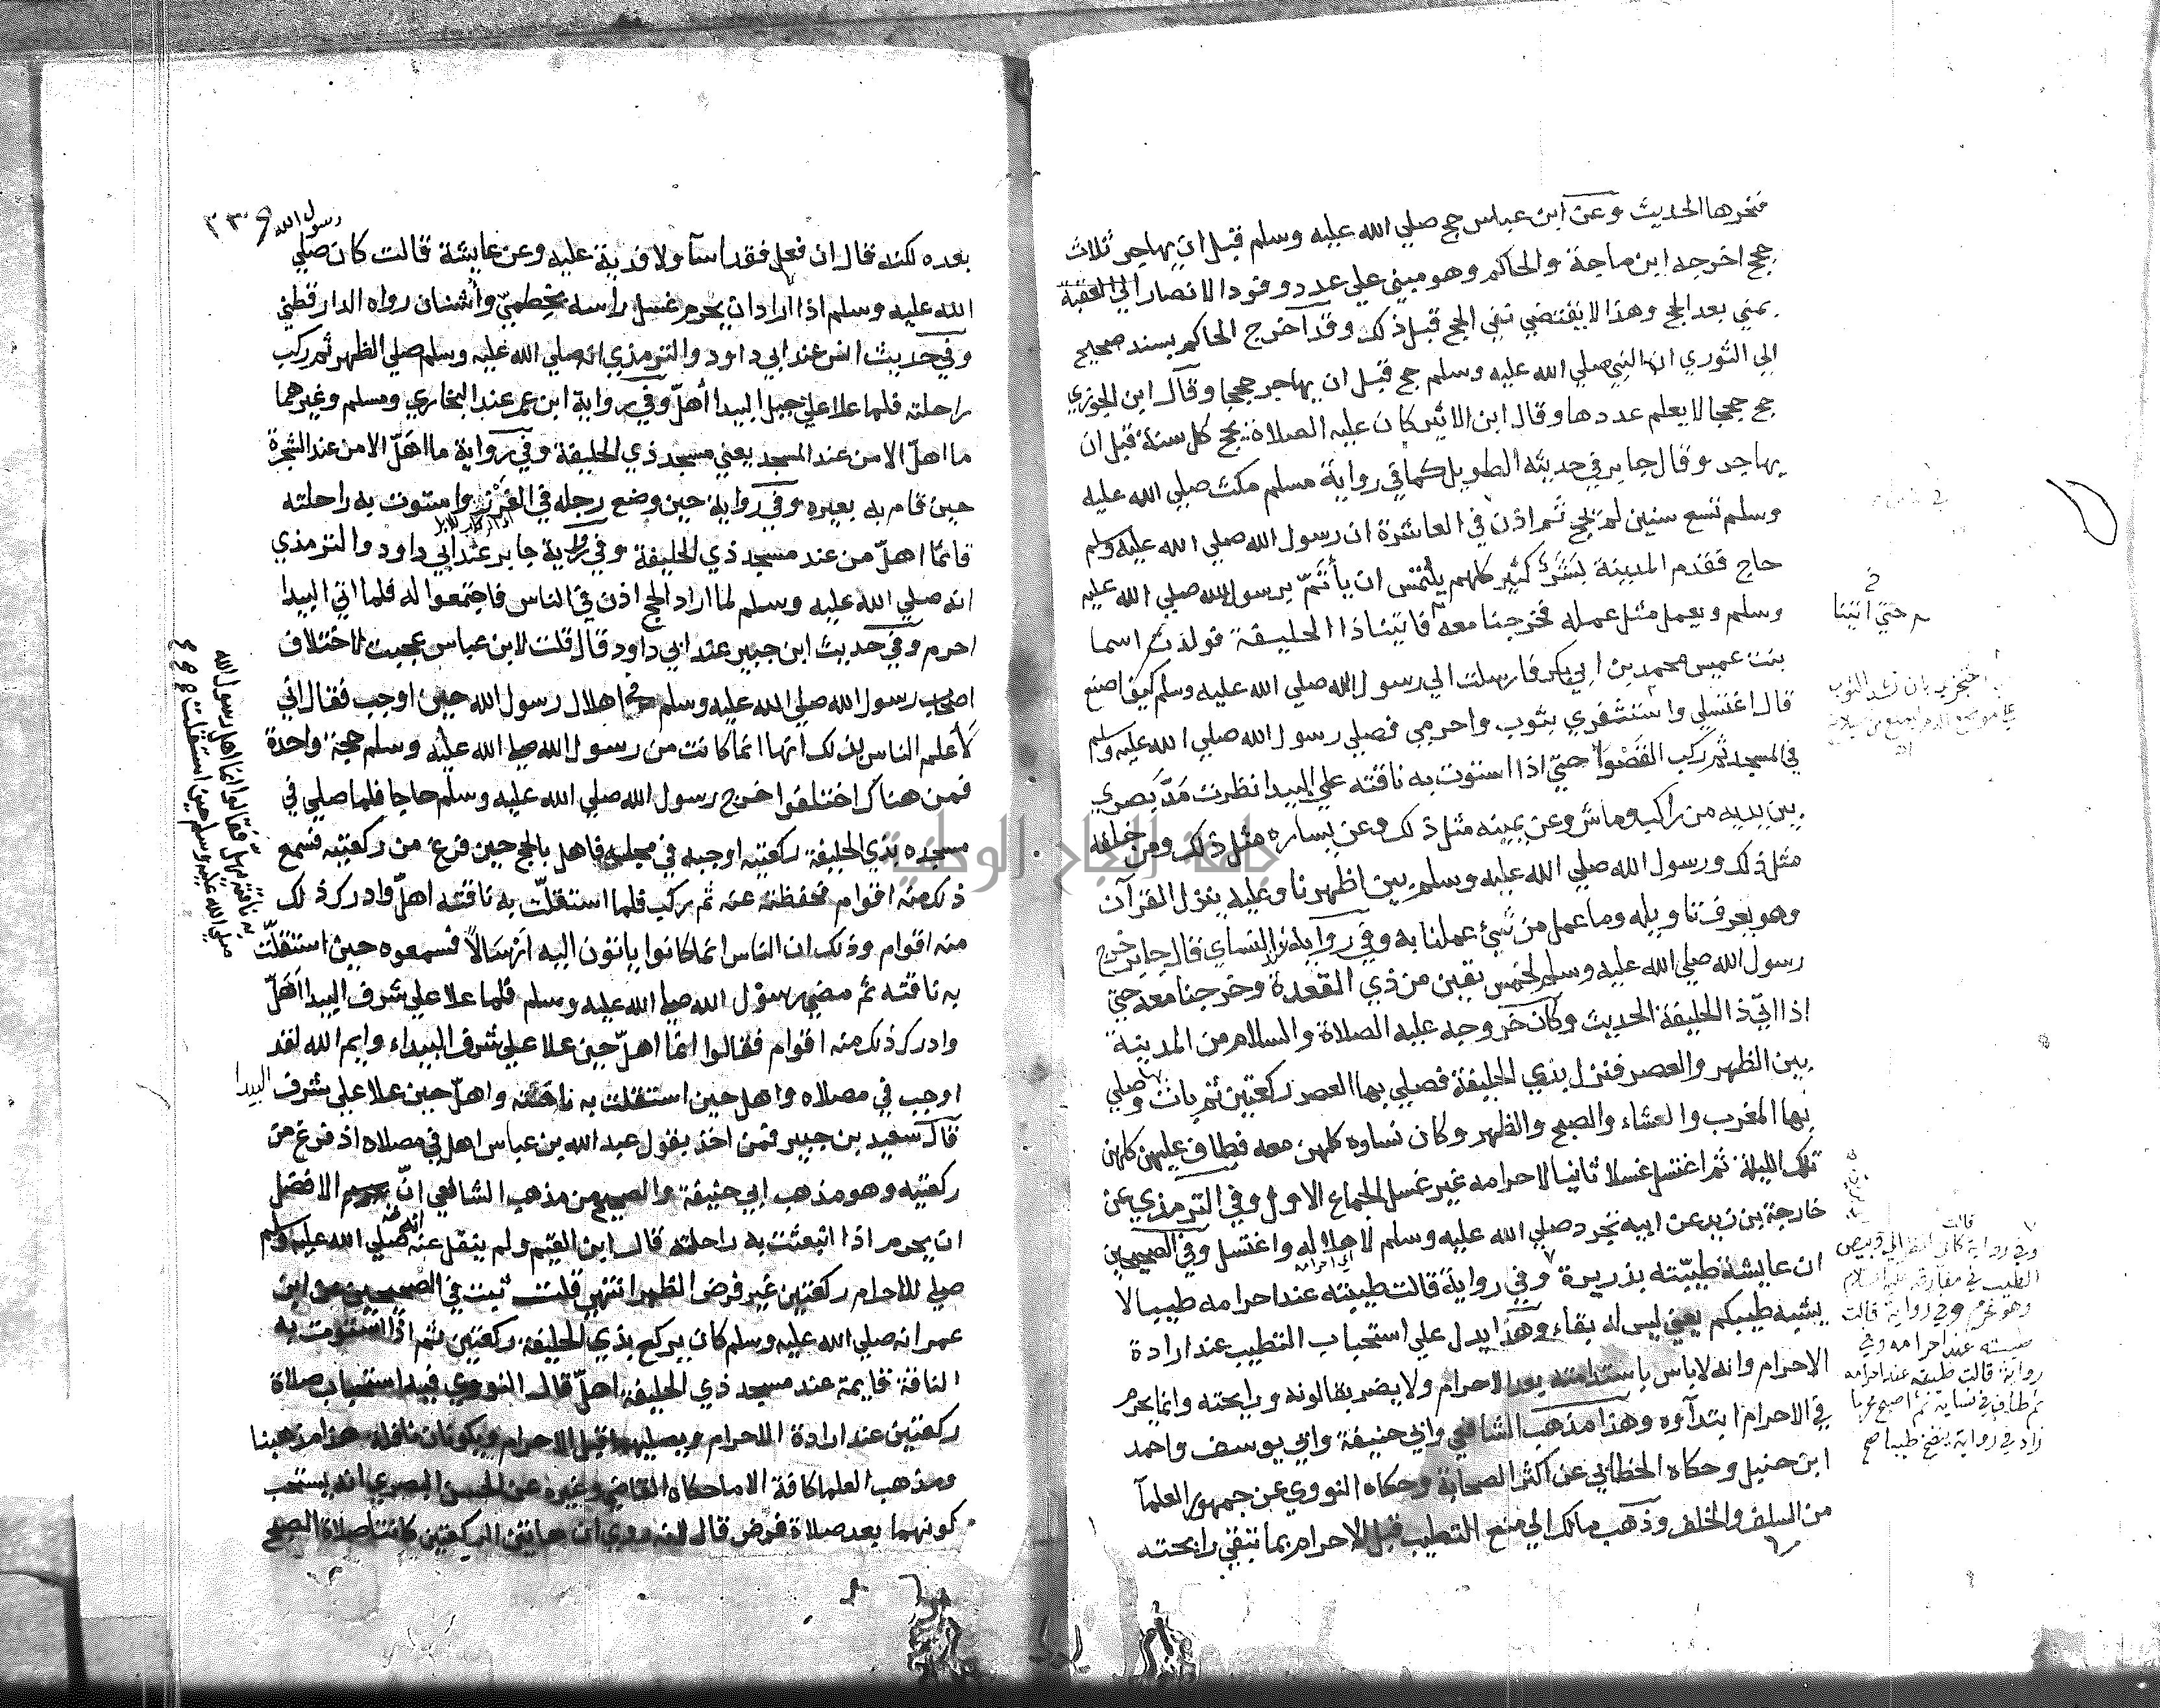 فنحرها الحديث وعن ابن عباس حج صلي الله عليه وسلم قبل ان يهاجر ثلاث
حجج اخرجه ابن ماجة والحاكم وهو مبني علي عدد وفود الانصار الي العقبة
بمني بعد الحج وهذا لا يقتضي نفي الحج قبل ذلك وقد اخرج الحاكم بسند صحيح
الي الثوري ان النبي صلي الله عليه وسلم حج قبل ان يهاجر حججا وقال ابن الجوزي
حج حججا لا يعلم عددها وقال ابن الاثير كان عليه الصلاة يحج كل سنة قبل ان
يهاجر وقال جابر في حديثه الطويل كما في رواية مسلم مكث صلي الله عليه
وسلم تسع سنين لم يحج ثم اذن في العاشرة ان رسول الله صلي الله عليه وسلم
حاج فقدم المدينة بشر كثير كلهم يلتمس ان يأتم برسول الله صلي الله عليه
وسلم ويعمل مثل عمله فخرجنا معه فاتينا ذا الحليفة فولدت اسما
بنت عميس محمد بن ابي بكر فارسلت الي رسول الله صلي الله عليه وسلم كيف اصنع
قال اغتسلي واستثفري بثوب واحرمي فصلي رسول الله صلي الله عليه وسلم
في المسجد ثم ركب القصوا حتي اذا استوت به ناقته علي البيدا نظرت مد بصري
بين يديه من راكب وماش وعن يمينه مثل ذلك وعن يساره مثل ذلك ومن خلفه
مثل ذلك ورسول الله صلي الله عليه وسلم بين اظهرنا وعليه ينزل القرآن
وهو يعرف تاويله وما عمل من شيء عملنا به وفي رواية النساي قال جابر خرج
رسول الله صلي الله عليه وسلم لخمس بقين من ذي القعدة وخرجنا معه حتي
اذا اتي ذا الحليفة الحديث وكان خروجه عليه الصلاة والسلام من المدينة
بين الظهر والعصر فنزل بذي الحليفة فصلي بها العصر ركعتين ثم بات بها وصلي
بها المغرب والعشاء والصبح والظهر وكان نساوه كلهن معه فطاف عليهن كلهن
تلك الليلة ثم اغتسل غسلا ثانيا لاحرامه غير غسل الجماع الاول وفي الترمذي عن
خارجة بن زيد عن ابيه تجرد صلي الله عليه وسلم لاهلاله واغتسل وفي الصحيحين
اي احرامه
ان عايشة طيبته بذريرة وفي رواية قالت طيبته عند احرامه طيبا لا
يشبه طيبكم يعني ليس له بقاء وهذا يدل علي استحباب التطيب عند ارادة
الاحرام وانه لا باس باستدامته بعد الاحرام ولا يضر بقا لونه ورايحته وانما يحرم
في الاحرام ابتدآوه وهذا مذهب الشافعي وابي حنيفة وابي يوسف واحمد
ابن حنبل وحكاه الخطابي عن اكثر الصحابة وحكاه النووي عن جمهور العلمآ
من السلف والخلف وذهب مالك الي منع التطيب قبل الاحرام بما تبقي رايحته
حتي اتينا
قالت
وفي رواية كاني انظر الي وبيص
الطيب في مفارقه عليه السلام
وهو محرم وفي رواية قالت
عند احرامه وفي
رواية قالت طيبته عند احرامه
ثم طاف في نسايه ثم اصبح محرما
زاد في رواية ينضخ طيبا صح
جامعة النجاح الوطنية
رسول الله
بعده لكنه قال ان فعل فقد اسآ ولا فدية عليه وعن عايشة قالت كان صلي
الله عليه وسلم اذا اراد ان يحرم غسل راسه بخطمي وأشنان رواه الدارقطني
وفي حديث انس عند ابي داود والترمذي انه صلي الله عليه وسلم صلي الظهر ثم ركب
راحلته فلما علا علي جبل البيدا أهل وفي رواية ابن عمر عند البخاري ومسلم وغيرهما
ما اهل الا من عند المسجد يعني مسجد ذي الحليفة وفي رواية ما اهل الا من عند الشجرة
حين قام به بعيره وفي رواية حين وضع رجله في الغرز واستوت به راحلته
قائما اهل من عند مسجد ذي الحليفة وفي رواية جابر عند ابي داود والترمذي
انه صلي الله عليه وسلم لما اراد الحج اذن في الناس فاجتمعوا له فلما اتي البيدا
احرم وفي حديث ابن جبير عند ابي داود قال قلت لابن عباس عجبت لاختلاف
اصحاب رسول الله صلي الله عليه وسلم في اهلال رسول الله حين اوجب فقال اني
لأعلم الناس بذلك انها انما كانت من رسول الله صلي الله عليه وسلم حجة واحدة
فمن هناك اختلفوا خرج رسول الله صلي الله عليه وسلم حاجا فلما صلي في
مسجده بذي الحليفة ركعتيه اوجبه في مجلسه فاهل بالحج حين فرغ من ركعتيه فسمع
ذلك منه اقوام فحفظته عنه ثم ركب فلما استقلت به ناقته اهل وادرك ذلك
منه اقوام وذلك ان الناس انما كانوا ياتون اليه ارسالا فسمعوه حين استقلت
به ناقته ثم مضي رسول الله صلي الله عليه وسلم فلما علا علي شرف البيدا اهل
وادرك ذلك منه اقوام فقالوا انما اهل حين علا علي شرف البيداء وايم الله لقد
اوجب في مصلاه واهل حين استقلت به ناقته واهل حين علا علي شرف البيدا
قال سعيد بن جبير فمن اخذ بقول عبد الله بن عباس اهل في مصلاه اذ فرغ من
ركعتيه وهو مذهب ابي حنيفة والصحيح من مذهب الشافعي ان الافضل
ان يحرم اذا انبعثت به راحلته قال ابن القيم ولم ينقل عنه انه صلي الله عليه وسلم
صلي للاحرام ركعتين غير فرض الظهر انتهي قلت ثبت في الصحيحين عن ابن
عمر انه صلي الله عليه وسلم كان يركع بذي الحليفة ركعتين ثم اذا استوت به
الناقة قايمة عند مسجد ذي الحليفة اهل قال النووي فيه استحباب صلاة
ركعتين عند ارادة الاحرام ويصليهما قبل الاحرام ويكونان نافلة هذا مذهبنا
ومذهب العلما كافة الا ما حكاه القاضي وغيره عن الحسن البصري انه يستحب
كونهما بعد صلاة فرض قال لانه روي ان هاتين الركعتين كانتا صلاة الصبح
به ناقته يهل فقالوا انما اهل رسول الله
صلي الله عليه وسلم حين استقلت